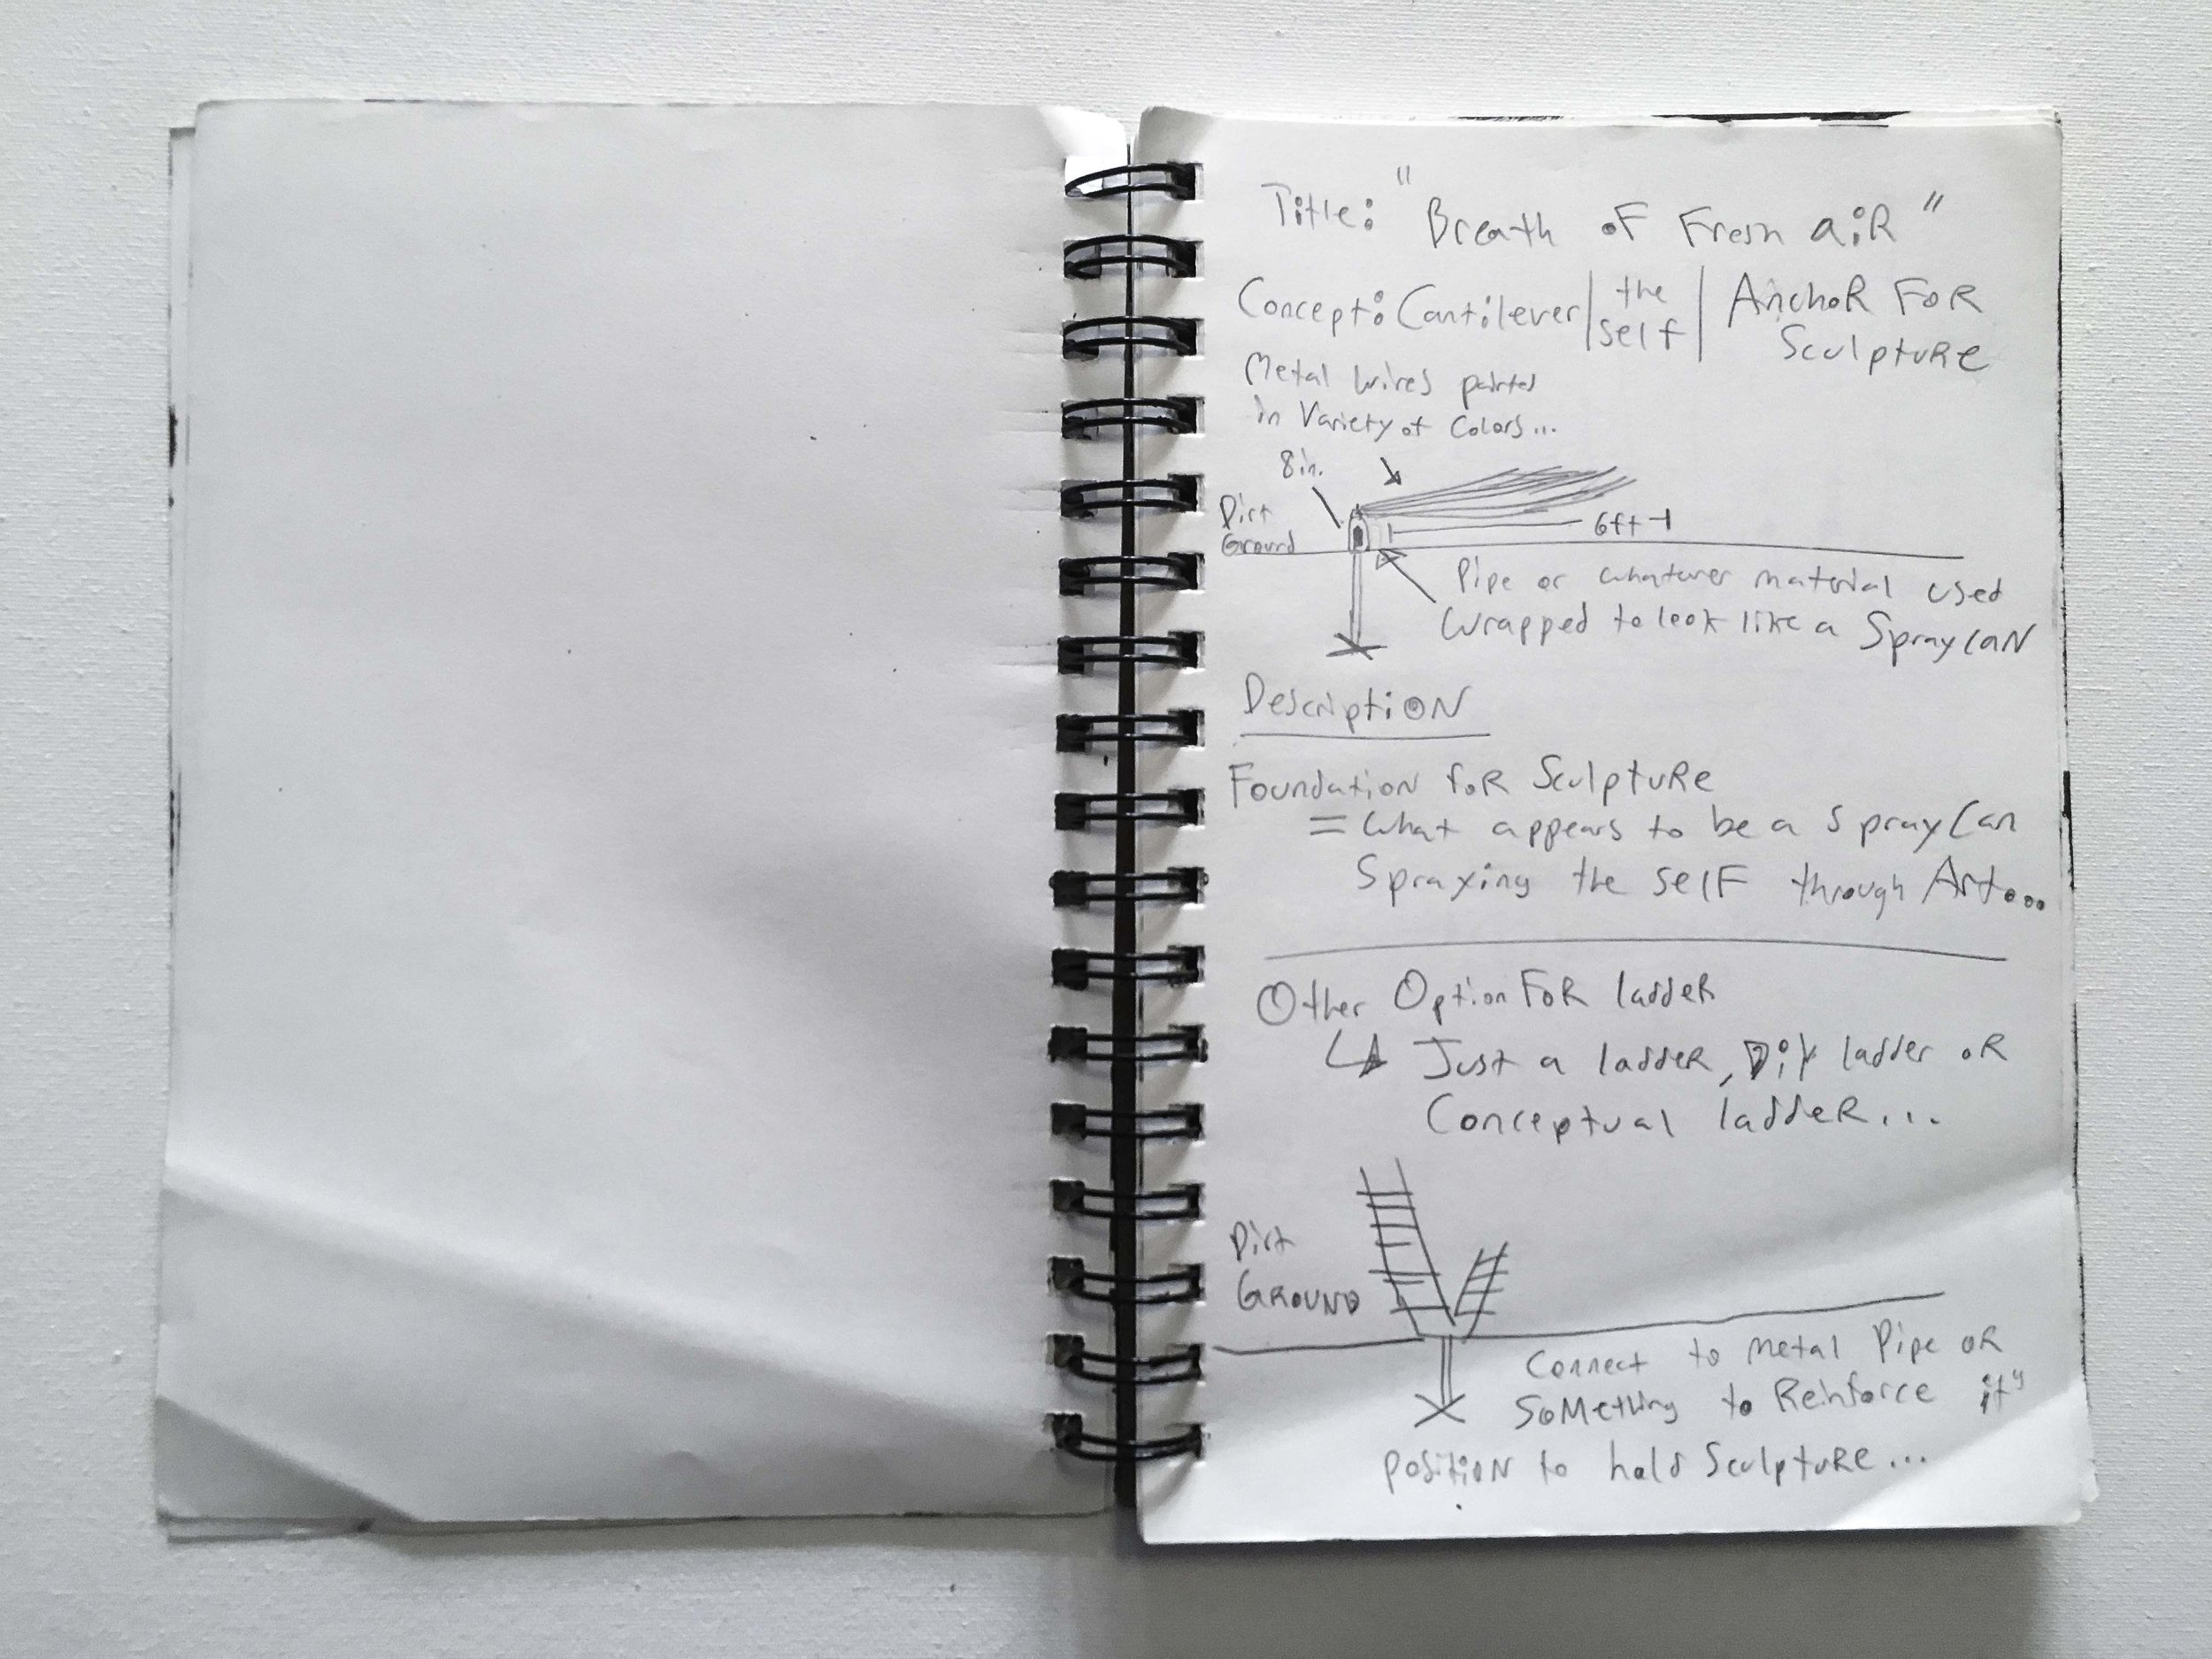 Title: "Breath of Fresh aiR"
Concept: Cantilever | the self | AnchoR FoR Sculpture
Metal wires painted
in Variety of Colors...
8in.
Dirt
Ground
6ft
Pipe or whatever material used
Wrapped to look like a SprayCaN
DescriptioN
FoundatioN foR SculptuRe
= What appears to be a SprayCan
Spraying the self through Art...
Other Option FoR laddeR
Just a laddeR, DiY ladder oR
Conceptual laddeR...
Dirt
GROUND
Connect to metal Pipe oR
SoMething to Reinforce it"
PositioN to hold SculptuRe...